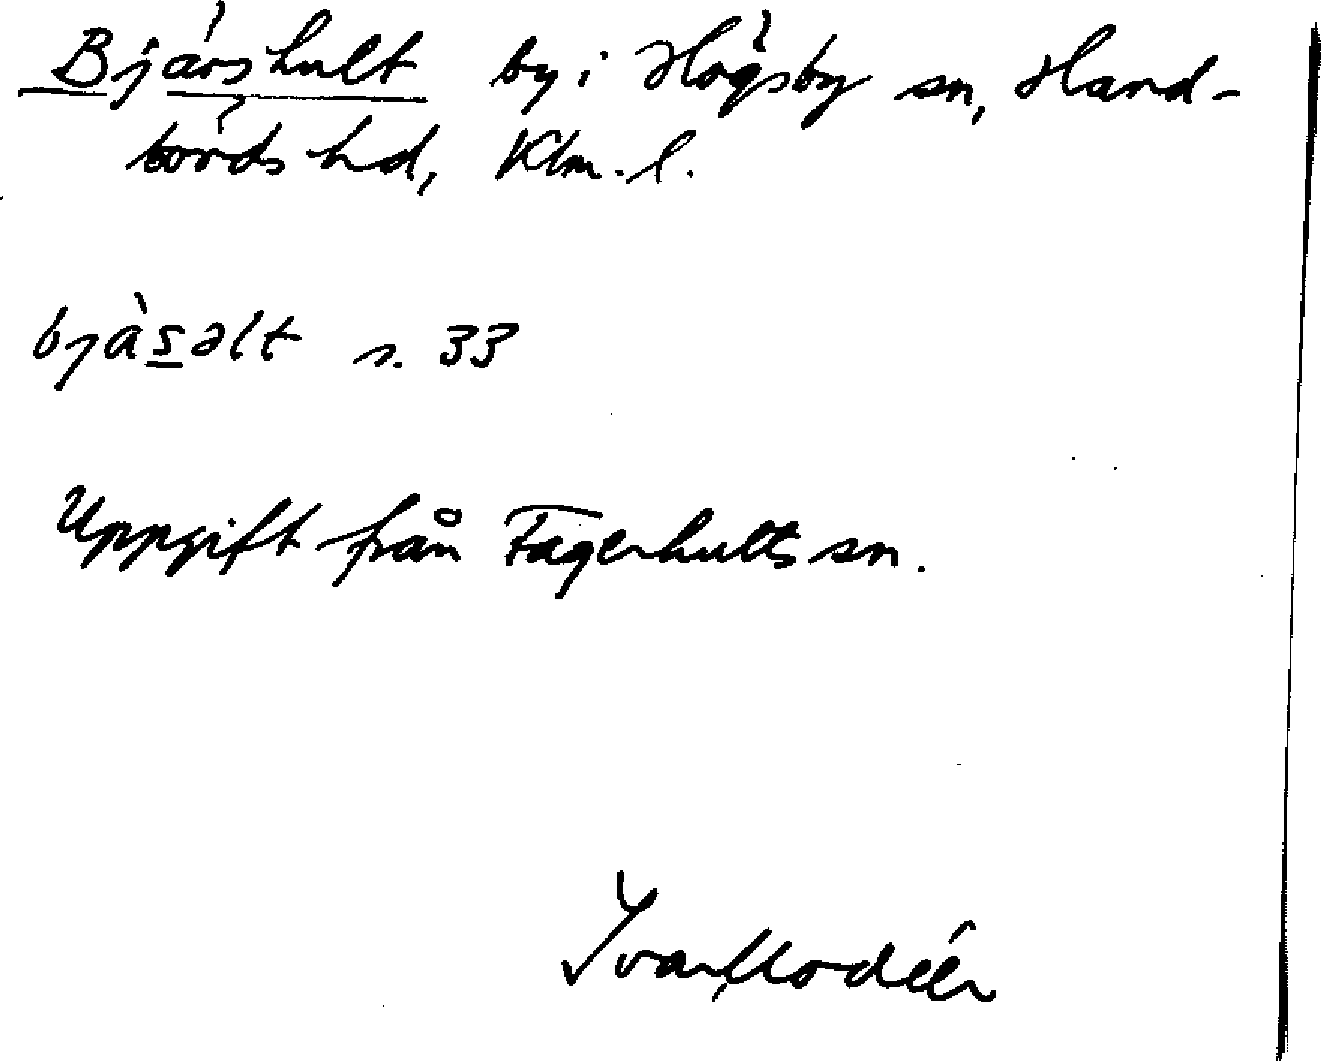 Bjärshult by i Högsby sn, Hand-
börds hd, Klm. l.
bjàs̲əlt s. 33
Uppgift från Fagerhults sn.
Ivar Modéer